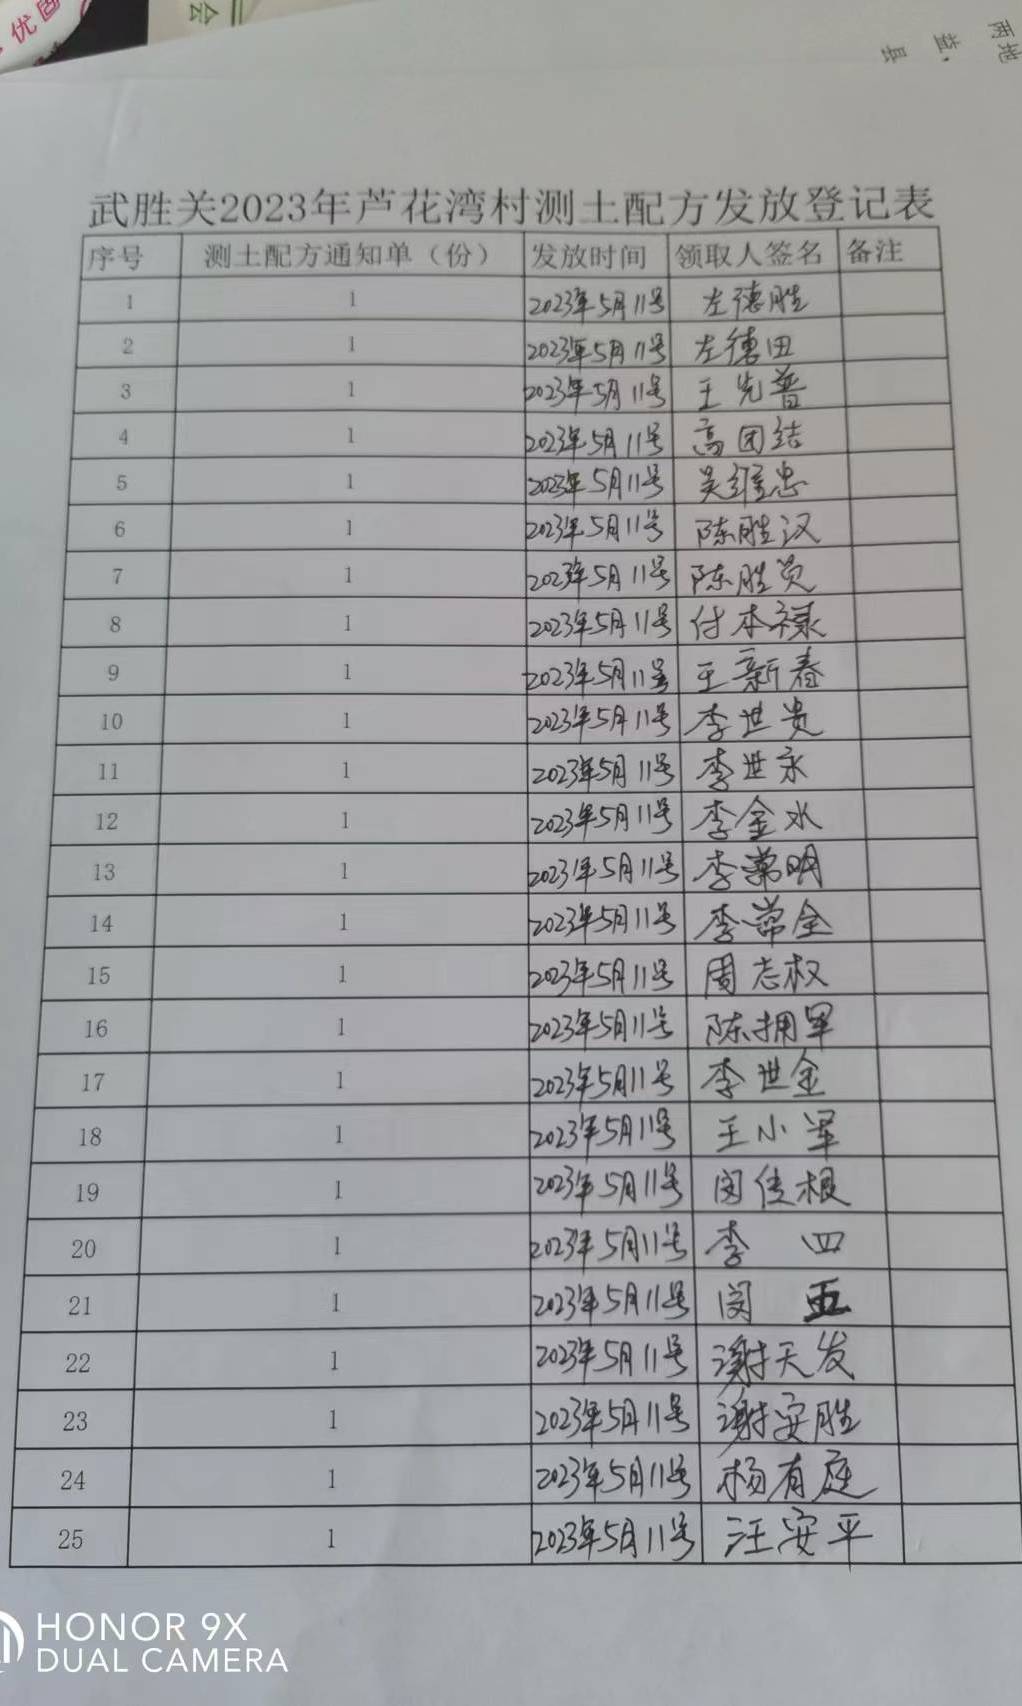 优固
会
两地
益,
县
武胜关2023年芦花湾村测土配方发放登记表
序号 测土配方通知单（份） 发放时间 领取人签名 备注
1 1 2023年5月11号 左德胜
2 1 2023年5月11号 左德田
3 1 2023年5月11号 王先普
4 1 2023年5月11号 高团结
5 1 2023年5月11号 吴维忠
6 1 2023年5月11号 陈胜汉
7 1 2023年5月11号 陈胜员
8 1 2023年5月11号 付本禄
9 1 2023年5月11号 王新春
10 1 2023年5月11号 李世贵
11 1 2023年5月11号 李世永
12 1 2023年5月11号 李金水
13 1 2023年5月11号 李常明
14 1 2023年5月11号 李常全
15 1 2023年5月11号 周志权
16 1 2023年5月11号 陈拥军
17 1 2023年5月11号 李世金
18 1 2023年5月11号 王小军
19 1 2023年5月11号 闵佳根
20 1 2023年5月11号 李四
21 1 2023年5月11号 闵五
22 1 2023年5月11号 谢天发
23 1 2023年5月11号 谢安胜
24 1 2023年5月11号 杨有庭
25 1 2023年5月11号 汪安平
HONOR 9X
DUAL CAMERA